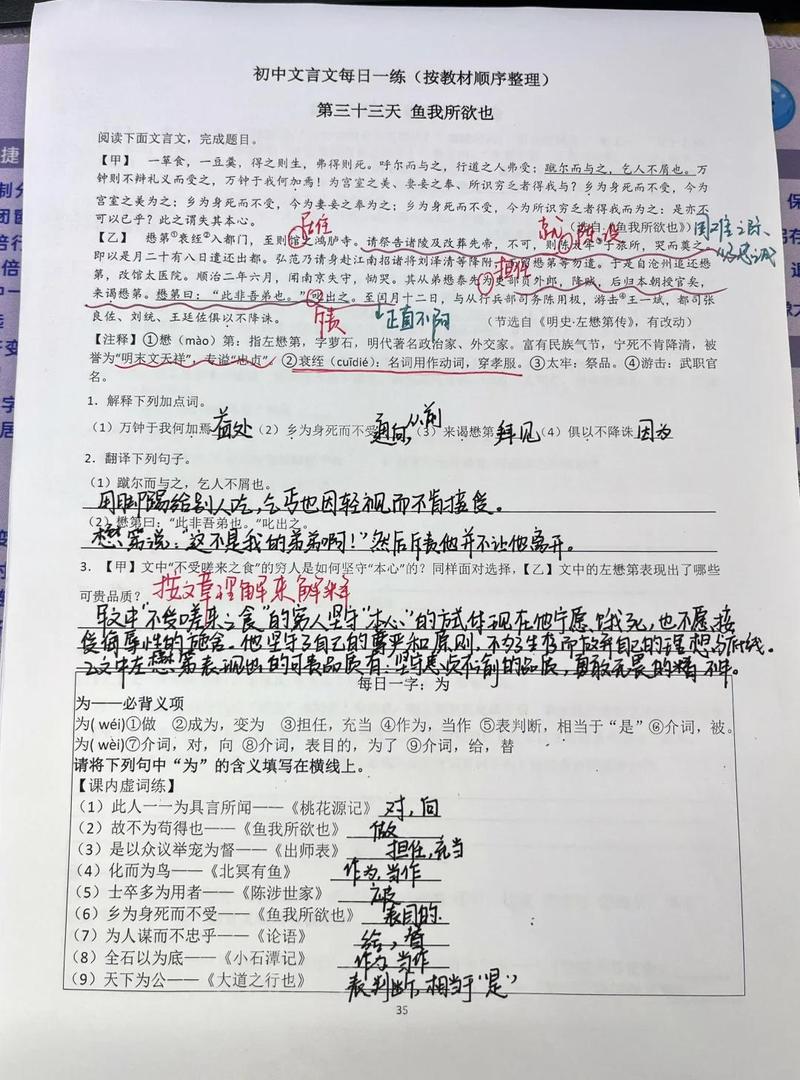 初中文言文每日一练（按教材顺序整理）
第三十三天 鱼我所欲也
阅读下面文言文，完成题目。
【甲】 一箪食，一豆羹，得之则生，弗得则死。呼尔而与之，行道之人弗受；蹴尔而与之，乞人不屑也。万
钟则不辩礼义而受之，万钟于我何加焉！为宫室之美、妻妾之奉、所识穷乏者得我与？乡为身死而不受，今为
宫室之美为之；乡为身死而不受，今为妻妾之奉为之；乡为身死而不受，今为所识穷乏者得我而为之：是亦不
可以已乎？此之谓失其本心。
居住
【乙】 懋第①衰绖②入都门，至则馆之鸿胪寺。请祭告诸陵及改葬先帝，不可，则陈太牢于旅所，哭而奠之。
即以是月二十有八日遣还出都。弘范乃请身赴江南招诸将刘泽清等降附，留懋第等勿遣。于是自沧州追还懋
担任
第，改馆太医院。顺治二年六月，闻南京失守，恸哭。其从弟懋泰先为吏部员外郎，降贼，后归本朝授官矣，
来谒懋第。懋第曰：“此非吾弟也。”叱出之。至闰月十二日，与从行兵部司务陈用极，游击④王一斌，都司张
斥责
正直不阿
良佐、刘统、王廷佐俱以不降诛。 （节选自《明史·左懋第传》，有改动）
【注释】①懋（mào）第：指左懋第，字萝石，明代著名政治家、外交家。富有民族气节，宁死不肯降清，被
誉为“明末文天祥”，专谥“忠贞”。②衰绖（cuīdié）：名词用作动词，穿孝服。③太牢：祭品。④游击：武职官
名。
1．解释下列加点词。
（1）万钟于我何加焉 益处（2）乡为身死而不受 通向，从前（3）来谒懋第 拜见（4）俱以不降诛 因为
2．翻译下列句子。
（1）蹴尔而与之，乞人不屑也。
用脚踢给别人吃，乞丐也因轻视而不肯接受。
（2）懋第曰：“此非吾弟也。”叱出之。
懋第说：“这不是我的弟弟啊！”然后斥责他并不让他离开。
3．【甲】文中“不受嗟来之食”的穷人是如何坚守“本心”的？同样面对选择，【乙】文中的左懋第表现出了哪些
可贵品质？
按文章理解来解释
甲文中“不受嗟来之食”的穷人坚守“本心”的方式体现在他宁愿饿死，也不愿接
受侮辱性的施舍。他坚守了自己的尊严和原则，不为了生存而放弃自己的理想与底线。
乙文中左懋第表现出的可贵品质有：坚守忠贞不渝的品质，勇敢无畏的精神。
每日一字：为
为——必背义项
为( wéi)①做 ②成为，变为 ③担任，充当 ④作为，当作 ⑤表判断，相当于“是”⑥介词，被。
为( wèi)⑦介词，对，向 ⑧介词，表目的，为了 ⑨介词，给，替
请将下列句中“为”的含义填写在横线上。
【课内虚词练】
（1）此人一一为具言所闻——《桃花源记》 对，向
（2）故不为苟得也——《鱼我所欲也》 做
（3）是以众议举宠为督——《出师表》 担任，充当
（4）化而为鸟——《北冥有鱼》 作为，当作
（5）士卒多为用者——《陈涉世家》 被
（6）乡为身死而不受——《鱼我所欲也》 表目的
（7）为人谋而不忠乎——《论语》 给，替
（8）全石以为底——《小石潭记》 作为，当作
（9）天下为公——《大道之行也》 表判断，相当于“是”
35